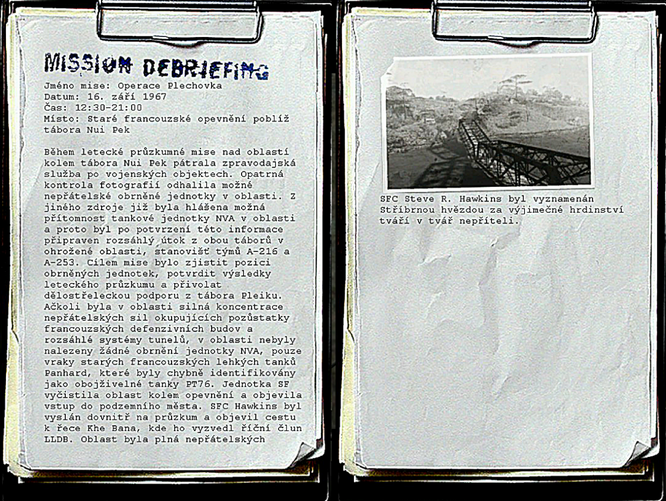 MISSION DEBRIEFING
Jméno mise: Operace Plechovka
Datum: 16. září 1967
Čas: 12:30-21:00
Místo: Staré francouzské opevnění poblíž
tábora Nui Pek
Během letecké průzkumné mise nad oblastí
kolem tábora Nui Pek pátrala zpravodajská
služba po vojenských objektech. Opatrná
kontrola fotografií odhalila možné
nepřátelské obrněné jednotky v oblasti. Z
jiného zdroje již byla hlášena možná
přítomnost tankové jednotky NVA v oblasti
a proto byl po potvrzení této informace
připraven rozsáhlý útok z obou táborů v
ohrožené oblasti, stanovišť týmů A-216 a
A-253. Cílem mise bylo zjistit pozici
obrněných jednotek, potvrdit výsledky
leteckého průzkumu a přivolat
dělostřeleckou podporu z tábora Pleiku.
Ačkoli byla v oblasti silná koncentrace
nepřátelských sil okupujících pozůstatky
francouzských defenzivních budov a
rozsáhlé systémy tunelů, v oblasti nebyly
nalezeny žádné obrnění jednotky NVA, pouze
vraky starých francouzských lehkých tanků
Panhard, které byly chybně identifikovány
jako obojživelné tanky PT76. Jednotka SF
vyčistila oblast kolem opevnění a objevila
vstup do podzemního města. SFC Hawkins byl
vyslán dovnitř na průzkum a objevil cestu
k řece Khe Bana, kde ho vyzvedl říční člun
LLDB. Oblast byla plná nepřátelských
SFC Steve R. Hawkins byl vyznamenán
Stříbrnou hvězdou za výjimečné hrdinství
tváří v tvář nepříteli.